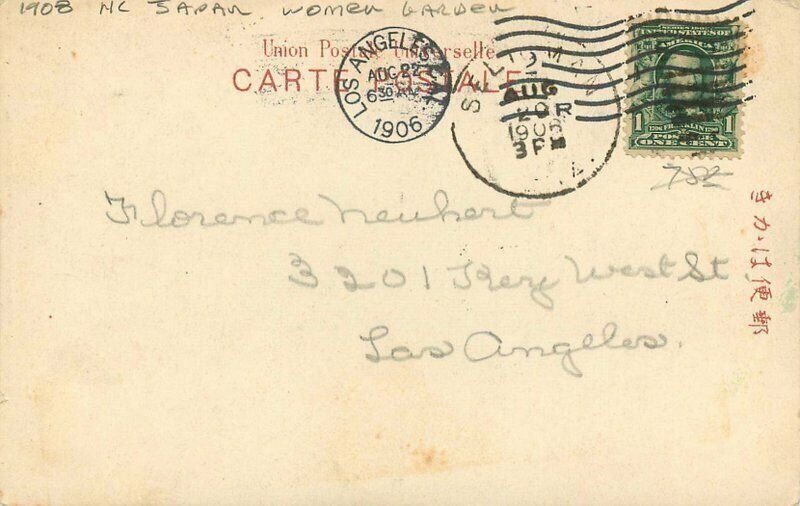 1908 NC JAPAN WOMEN GARDEN
Union Postale Universelle
CARTE POSTALE
LOS ANGELES, CAL.
AUG 22
630 AM
1906
AUG
20
1906
3 P
SERIES 1902
UNITED STATES OF
AMERICA
1706 FRANKLIN 1790
1 POSTAGE 1
ONE CENT
785
Florence Neuhart
3201 Key West St.
Los Angeles.
きかは便郵